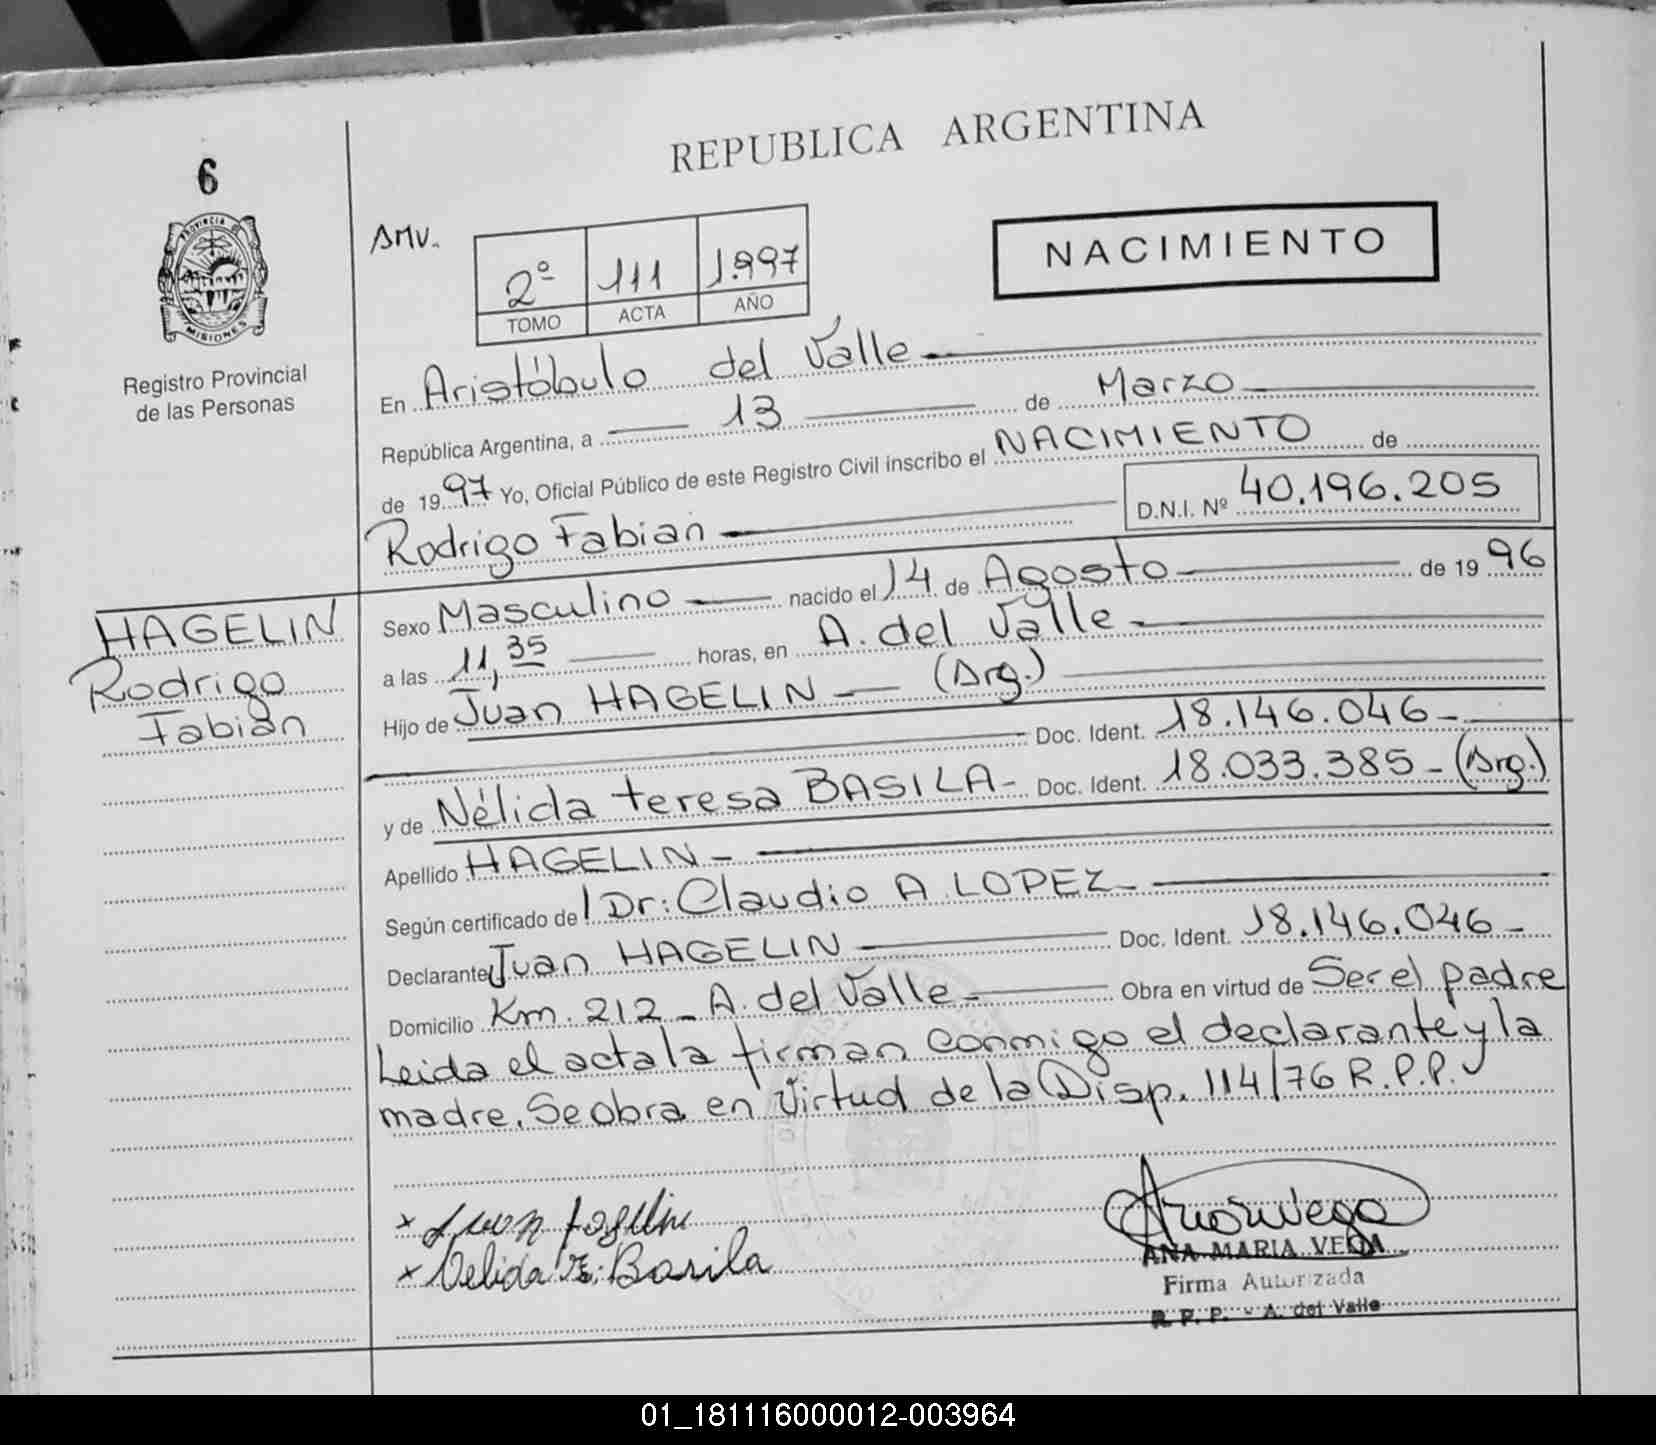 REPUBLICA ARGENTINA
6
PROVINCIA DE
MISIONES
Registro Provincial
de las Personas
AMV.
2º 111 1.997
TOMO ACTA AÑO
NACIMIENTO
En Aristóbulo del Valle
República Argentina, a 13 de Marzo
de 1997 Yo, Oficial Público de este Registro Civil inscribo el NACIMIENTO de
Rodrigo Fabian D.N.I. Nº 40.196.205
HAGELIN
Rodrigo
Fabián
Sexo Masculino nacido el 14 de Agosto de 1996
a las 11,35 horas, en A. del Valle
Hijo de Juan HAGELIN (Arg.)
Doc. Ident. 18.146.046
y de Nélida teresa BASILA Doc. Ident. 18.033.385 (Arg.)
Apellido HAGELIN
Según certificado de l Dr: Claudio A LOPEZ
Declarante Juan HAGELIN Doc. Ident. 18.146.046
Domicilio Km. 212 - A. del Valle Obra en virtud de Ser el padre
Leida el acta la firman conmigo el declarante y la
madre. Se obra en virtud de la Disp. 114/76 R.P.P.
x Juan Hagelin
x Nelida T. Basila
ANA MARIA VEGA
Firma Autorizada
R. P. P. - A. del Valle
01_181116000012-003964